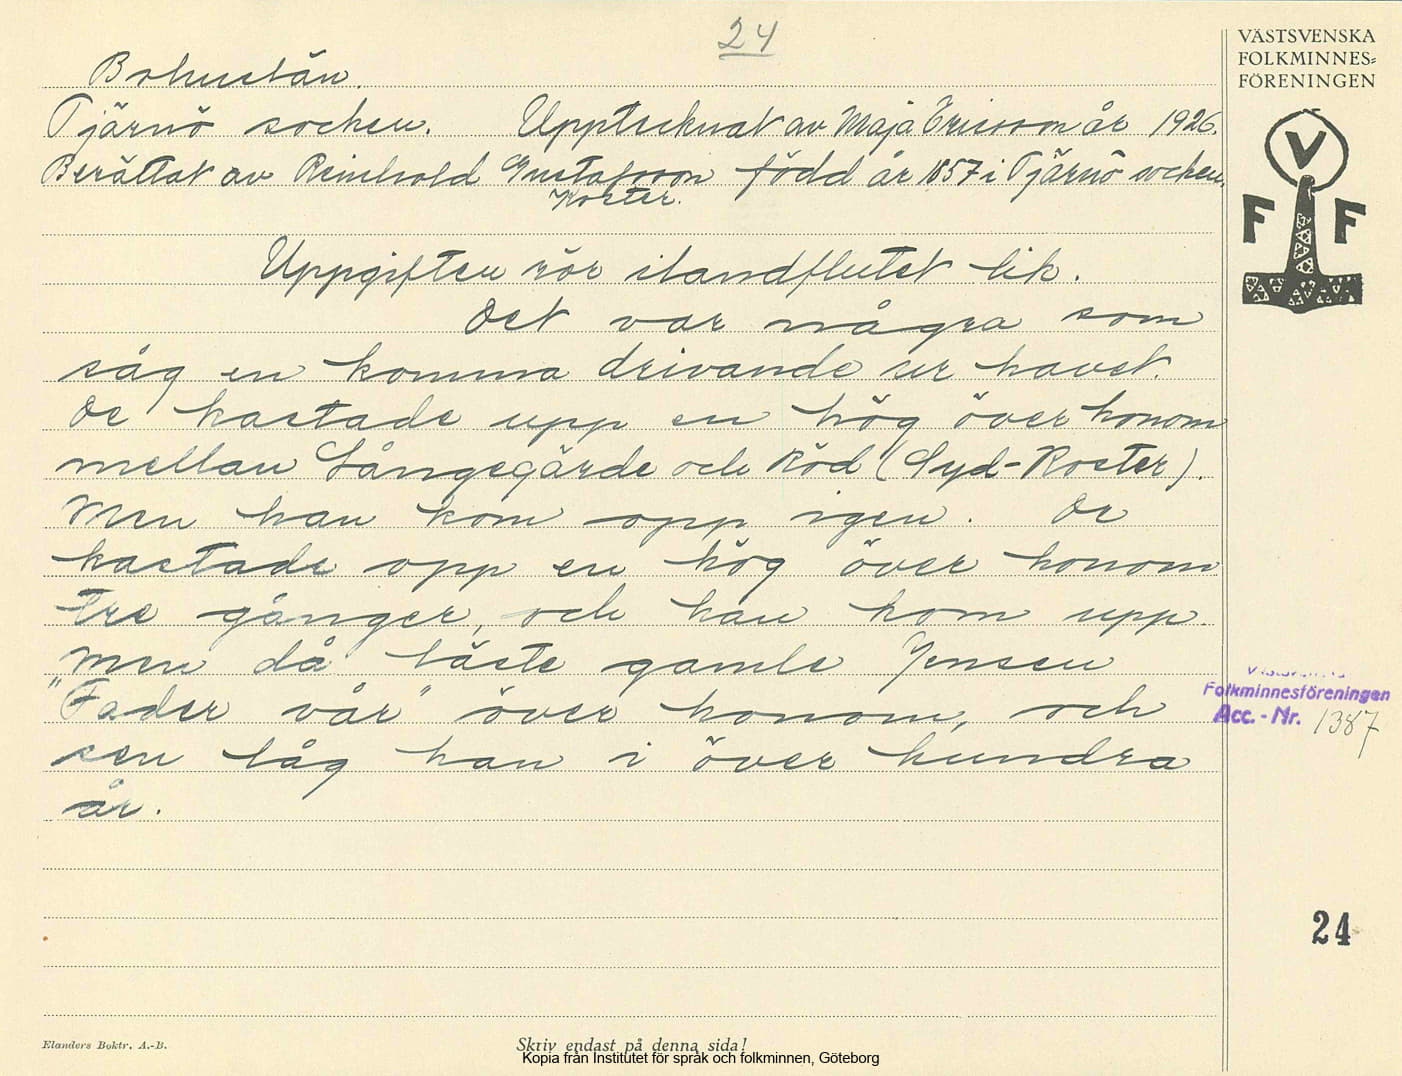 24
VÄSTSVENSKA
FOLKMINNES=
FÖRENINGEN
Bohuslän.
Tjärnö socken. Upptecknat av Maja Ericson år 1926.
Berättat av Reinhold Gustafsson född år 1857 i Tjärnö socken.
Koster.
V
F F
Uppgiften rör ilandflutet lik.
Det var några som
såg en komma drivande ur havet.
De kastade upp en hög över honom
mellan Långegärde och Röd (Syd-Koster).
Men han kom opp igen. De
kastade opp en hög över honom
tre gånger, och han kom upp.
Men då läste gamle Jensen
"Fader vår" över honom, och
sen låg han i över hundra
år.
Folkminnesföreningen
Acc.-Nr. 1387
24
Elanders Boktr. A.-B.
Skriv endast på denna sida!
Kopia från Institutet för språk och folkminnen, Göteborg